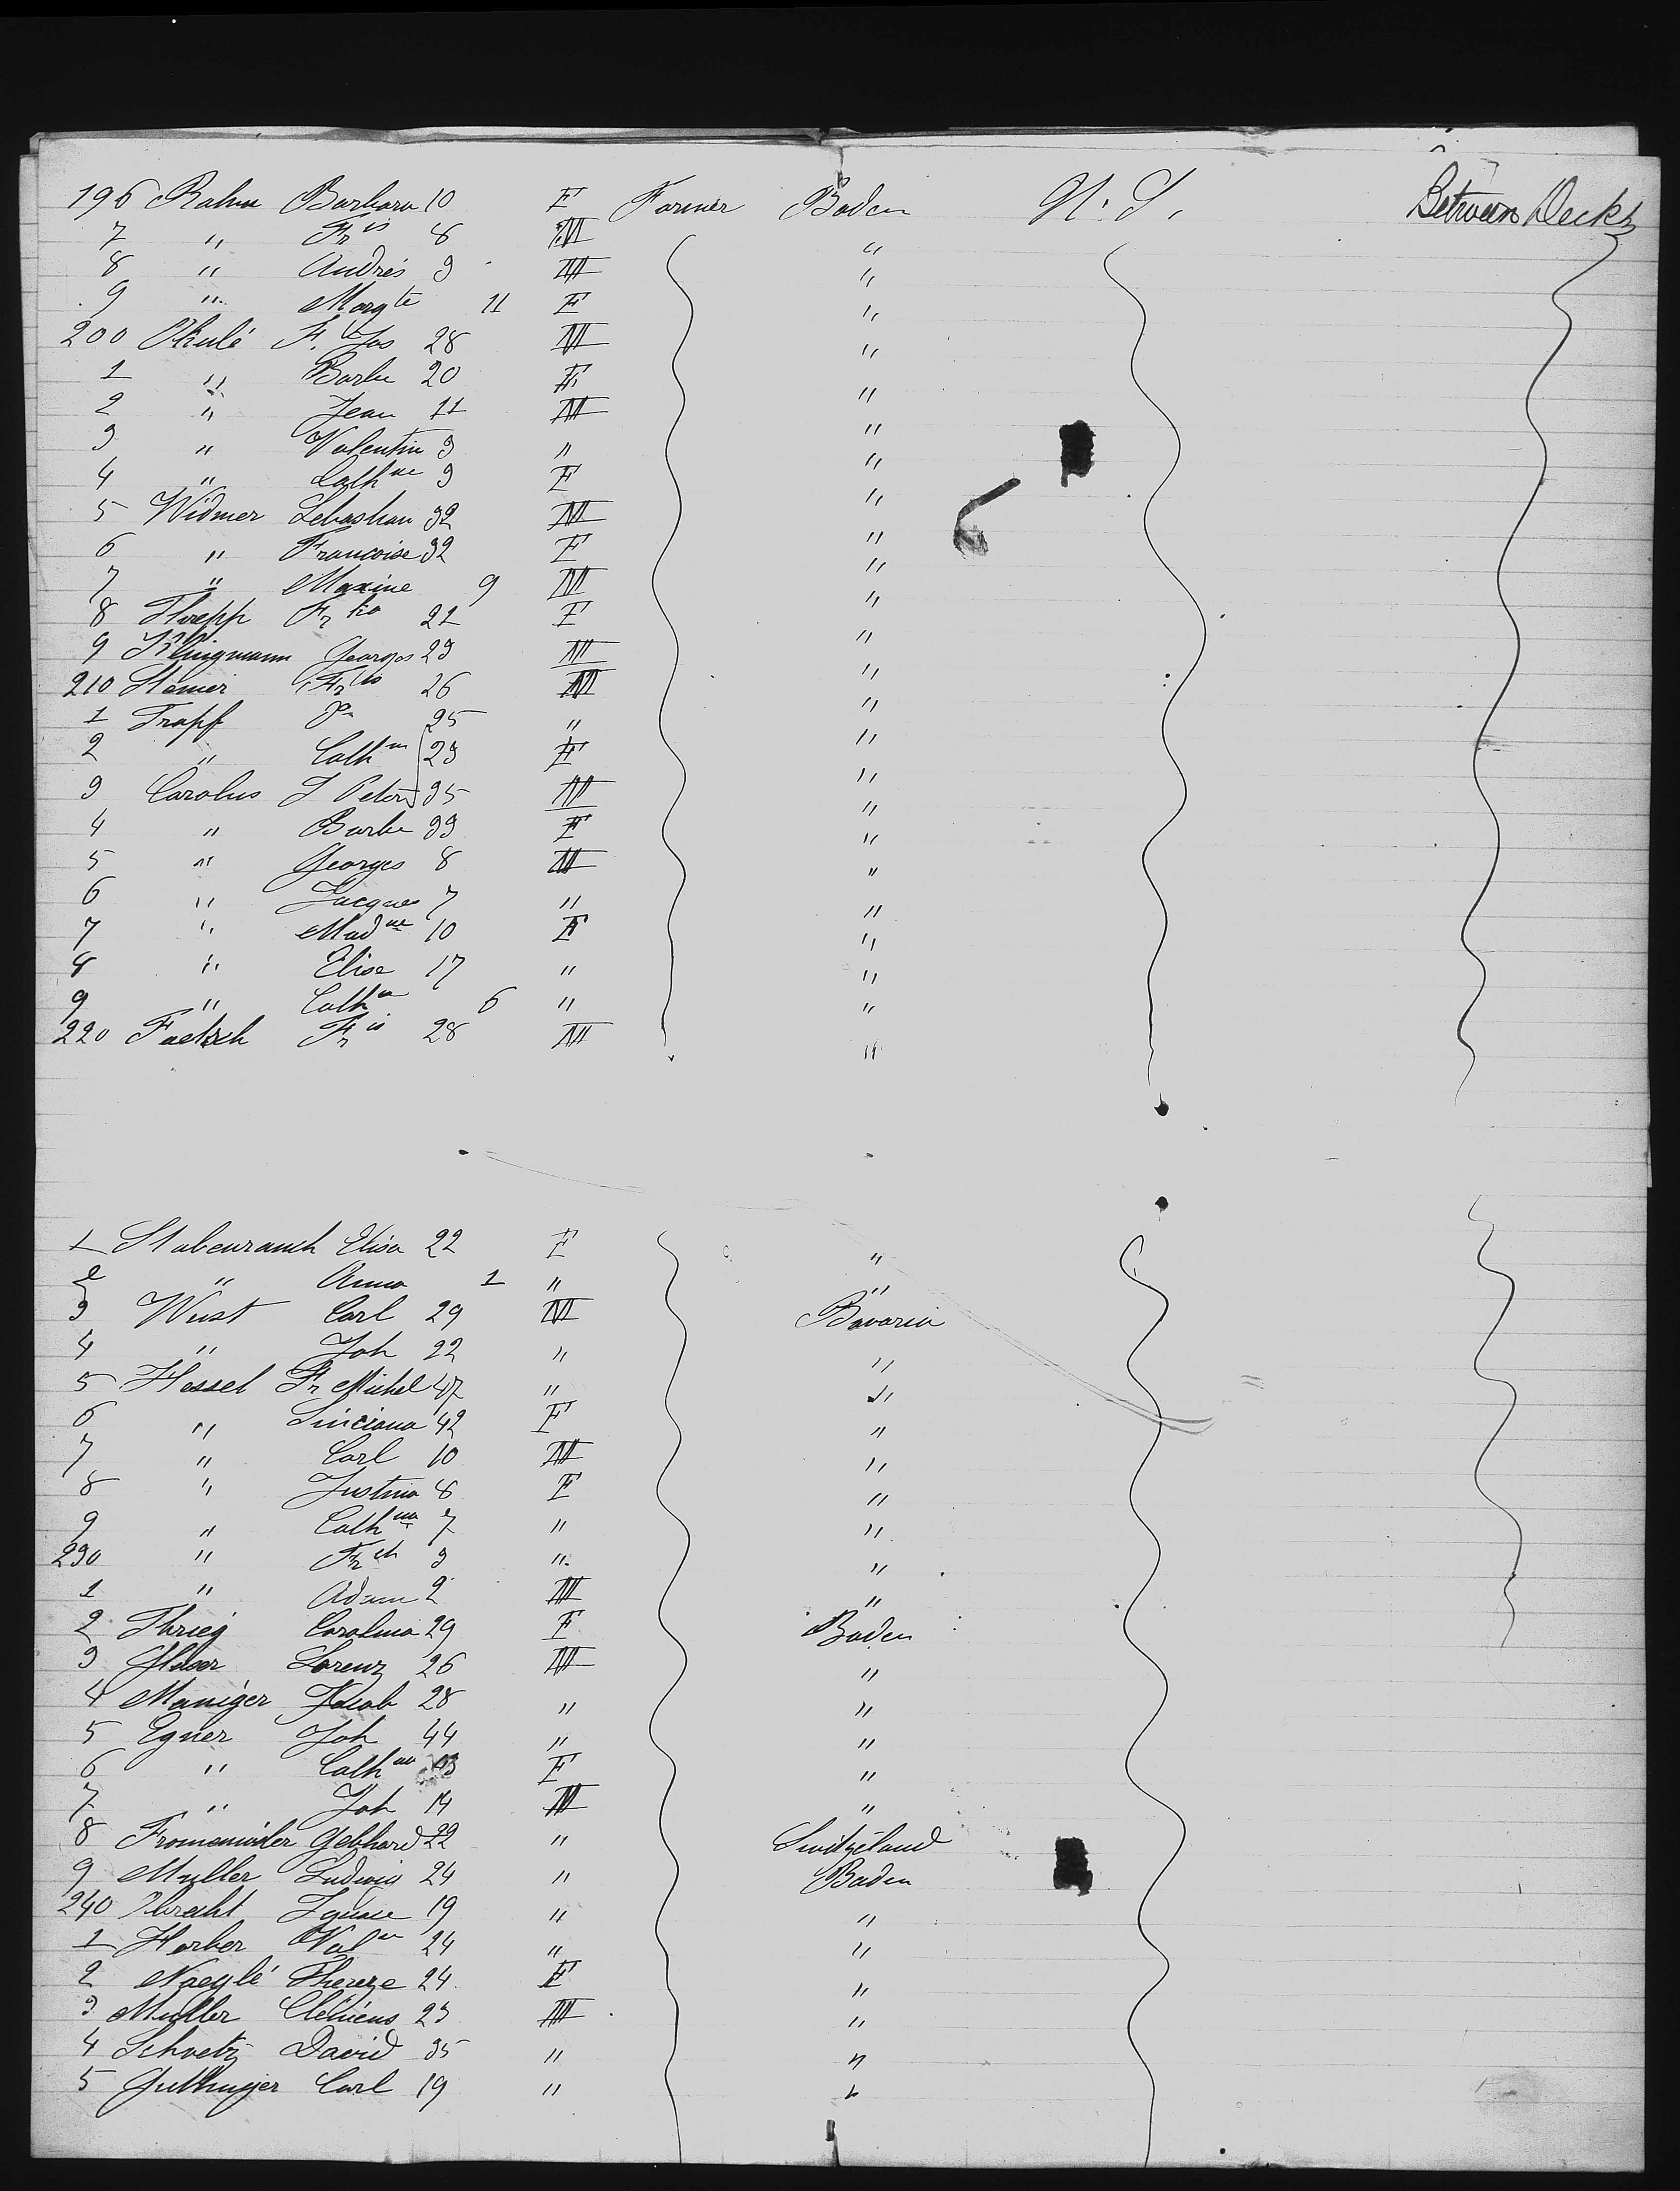 196 Rahm Barbara 10 F Farmer Baden U. S. Between Decks
7 " Frs 8 M "
8 " Andrés 3 M "
9 " Margte 11 F "
200 F. Jos 28 M "
1 " Barbe 20 F "
2 " Jean 11 M "
3 " Valentin 3 " "
4 " Cathne 3 F "
5 Widmer Sebastian 32 M "
6 " Francoise 32 F "
7 " Maxime 9 M "
8 21 F "
9 Klingmann Georges 23 M "
210 26 M "
1 Trapf 25 " "
2 " Cath 23 F "
3 Carolus J Peter 35 M "
4 " Barbe 33 F "
5 " Georges 8 M "
6 " Jacques 7 " "
7 " Madne 10 F "
8 " Elise 17 " "
9 " Cathe 6 " "
220 Faetsch Frs 28 M "
1 Stabenrauch Elisa 22 F "
2 " Anna 1 " "
3 Wust Carl 29 M Bavaria
4 " Joh 22 " "
5 Hessel Fr Michel 47 " "
6 " 42 F "
7 " Carl 10 M "
8 " Justina 8 F "
9 " Cathna 7 " "
230 " Frch 3 " "
1 " Adam 2 M "
2 Carolina 29 F Baden
3 Glaser Lorenz 26 M "
4 Maniger Jacob 28 " "
5 Egner Joh 44 " "
6 " Cathne 43 F "
7 " Joh 14 M "
8 Gebhard 22 " Switzeland
9 Muller Ludwig 24 " Baden
240 Ignace 19 " "
1 Herber Valn 24 " "
2 Naeglé Thereze 24 F "
3 Muller Clemens 23 M "
4 Schvetz David 35 " "
5 Carl 19 " "